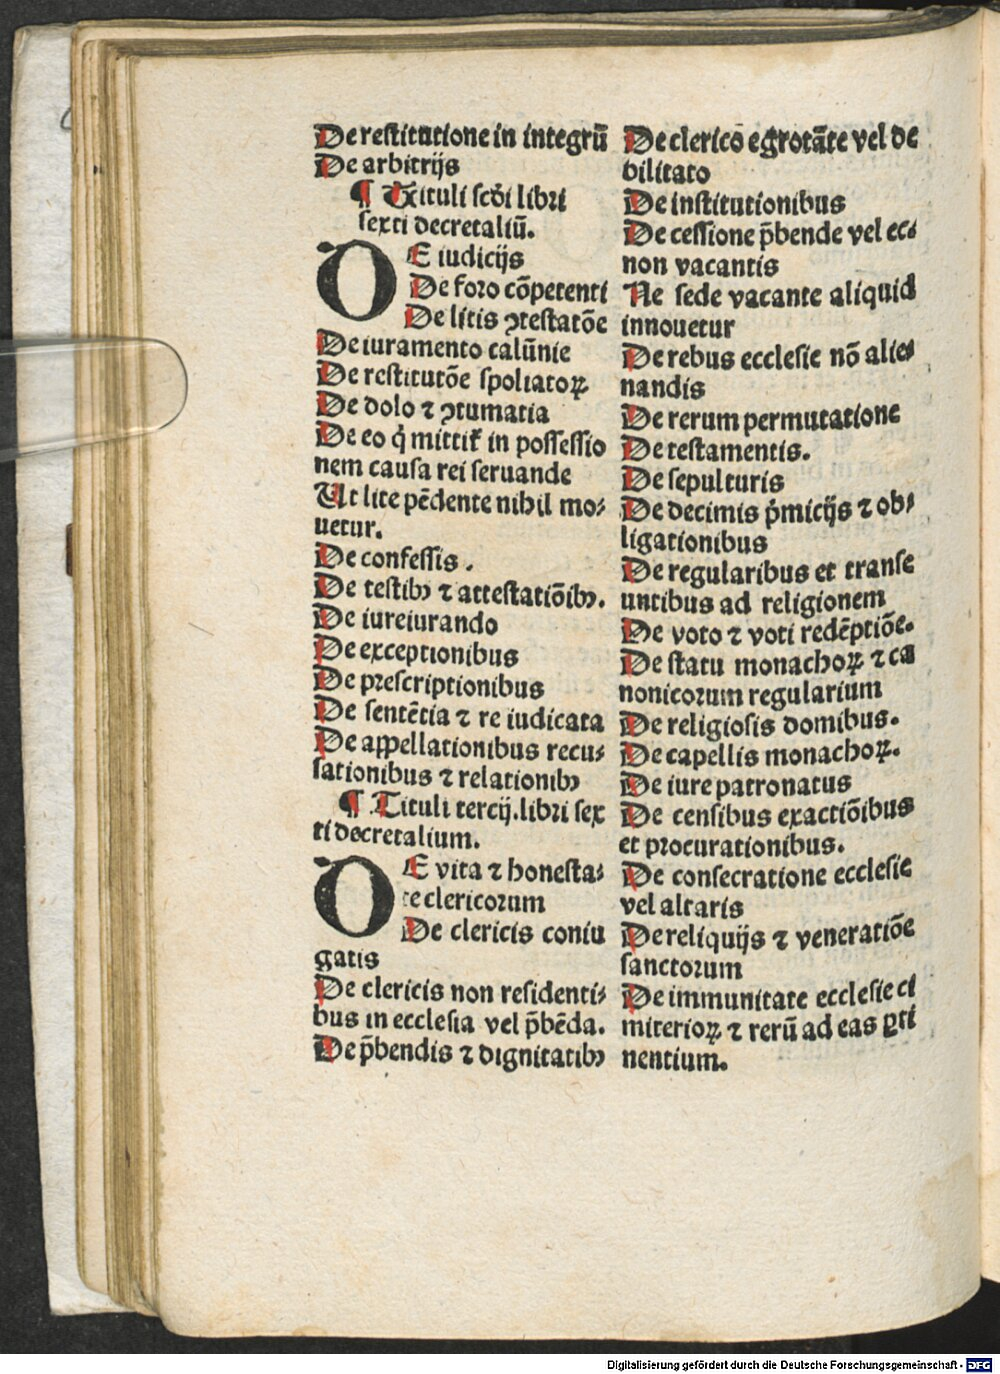 De restitutione in integrū
De arbitrijs
¶ Tituli scďi libri
sexti decretaliū.
DE iudicijs
De foro cōpetenti
De litis ꝯtestatōe
De iuramento calūnie
De restitutōe spoliatoꝝ
De dolo ⁊ ꝯtumatia
De eo q̇ mittit᷑ in possessio
nem causa rei seruande
Ut lite pēdente nihil mo⸗
uetur.
De confessis.
De testibꝫ ⁊ attestatiōibꝫ.
De iureiurando
De exceptionibus
De prescriptionibus
De sentētia ⁊ re iudicata
De appellationibus recu⸗
sationibus ⁊ relationibꝫ
¶ Tituli tercij. libri sex
ti decretalium.
DE vita ⁊ honesta⸗
te clericorum
De clericis coniu
gatis
De clericis non residenti⸗
bus in ecclesia vel p̄bēda.
De p̄bendis ⁊ dignitatibꝫ
De clerico egrotāte vel de
bilitato
De institutionibus
De cessione p̄bende vel eci
non vacantis
Ne sede vacante aliquid
innouetur
De rebus ecclesie nō alie⸗
nandis
De rerum permutatione
De testamentis.
De sepulturis
De decimis p̍micijs ⁊ ob⸗
ligationibus
De regularibus et transe
untibus ad religionem
De voto ⁊ voti redēptiōe.
De statu monachoꝝ ⁊ ca
nonicorum regularium
De religiosis domibus.
De capellis monachoꝝ.
De iure patronatus
De censibus exactiōibus
et procurationibus.
De consecratione ecclesie
vel altaris
De reliquijs ⁊ veneratiōe
sanctorum
De immunitate ecclesie ci
miterioꝝ ⁊ rerū ad eas ꝑti
nentium.
Digitalisierung gefördert durch die Deutsche Forschungsgemeinschaft - DFG